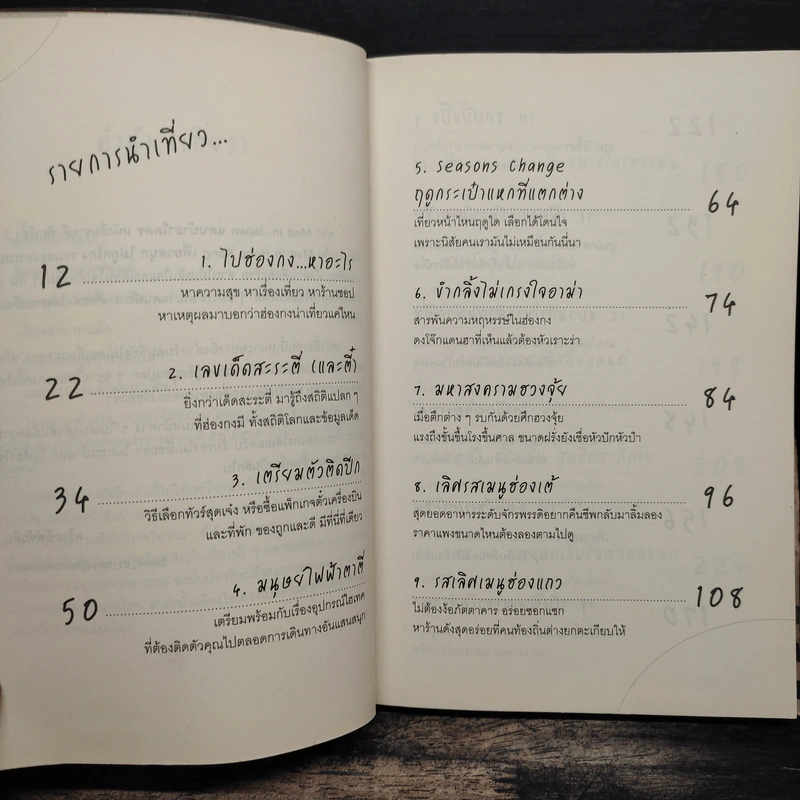 รายการนำเที่ยว...
12
1. ไปฮ่องกง...หาอะไร
หาความสุข หาเรื่องเที่ยว หาร้านชอป
หาเหตุผลมาบอกว่าฮ่องกงน่าเที่ยวแค่ไหน
22
2. เลขเด็ดสะระตี่ (และตี้)
ยิ่งกว่าเด็ดสะระตี่ มารู้ถึงสถิติแปลก ๆ
ที่ฮ่องกงมี ทั้งสถิติโลกและข้อมูลเด็ด
34
3. เตรียมตัวติดปีก
วิธีเลือกทัวร์สุดเจ๋ง หรือซื้อแพ็กเกจตั๋วเครื่องบิน
และที่พัก ของถูกและดี มีที่นี่ที่เดียว
50
4. มนุษย์ไฟฟ้าตาตี่
เตรียมพร้อมกับเรื่องอุปกรณ์ไฮเทค
ที่ต้องติดตัวคุณไปตลอดการเดินทางอันแสนสนุก
5. Seasons Change
ฤดูกระเป๋าแหกที่แตกต่าง
64
เที่ยวหน้าไหนฤดูใด เลือกได้โดนใจ
เพราะนิสัยคนเรามันไม่เหมือนกันนี่นา
6. ขำกลิ้งไม่เกรงใจอาม่า
74
สารพันความมหฤหรรษ์ในฮ่องกง
ดงโจ๊กแดนฮาที่เห็นแล้วต้องหัวเราะร่า
7. มหาสงครามฮวงจุ้ย
84
เมื่อตึกต่าง ๆ รบกันด้วยศึกฮวงจุ้ย
แรงถึงขั้นขึ้นโรงขึ้นศาล ขนาดฝรั่งยังเชื่อหัวปักหัวปำ
8. เลิศรสเมนูฮ่องเต้
96
สุดยอดอาหารระดับจักรพรรดิอยากคืนชีพกลับมาลิ้มลอง
ราคาแพงขนาดไหนต้องลองตามไปดู
9. รสเลิศเมนูฮ่องแถว
108
ไม่ต้องง้อภัตตาคาร อร่อยซอกแซก
หาร้านดังสุดอร่อยที่คนท้องถิ่นต่างยกตะเกียบให้